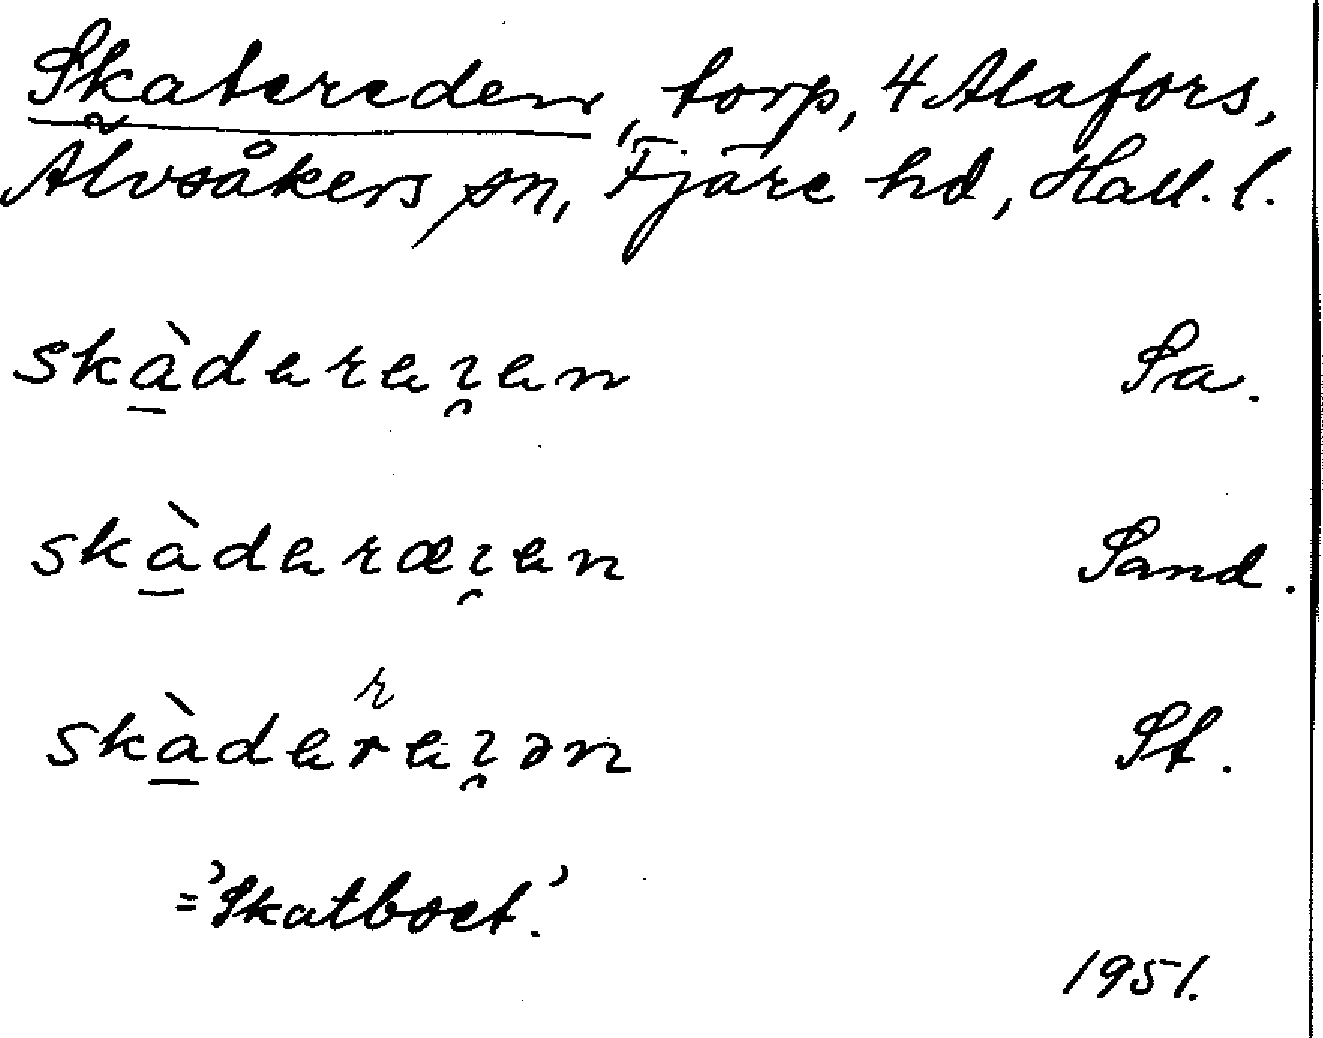 Skatereden, torp, 4 Alafors,
Älvsåkers sn, Fjäre hd, Hall. l.
skàderaɿ̯en Sa.
skàderæɿ̯en Sand.
r
skàderaɿ̯ən St.
='Skatboet.'
1951.